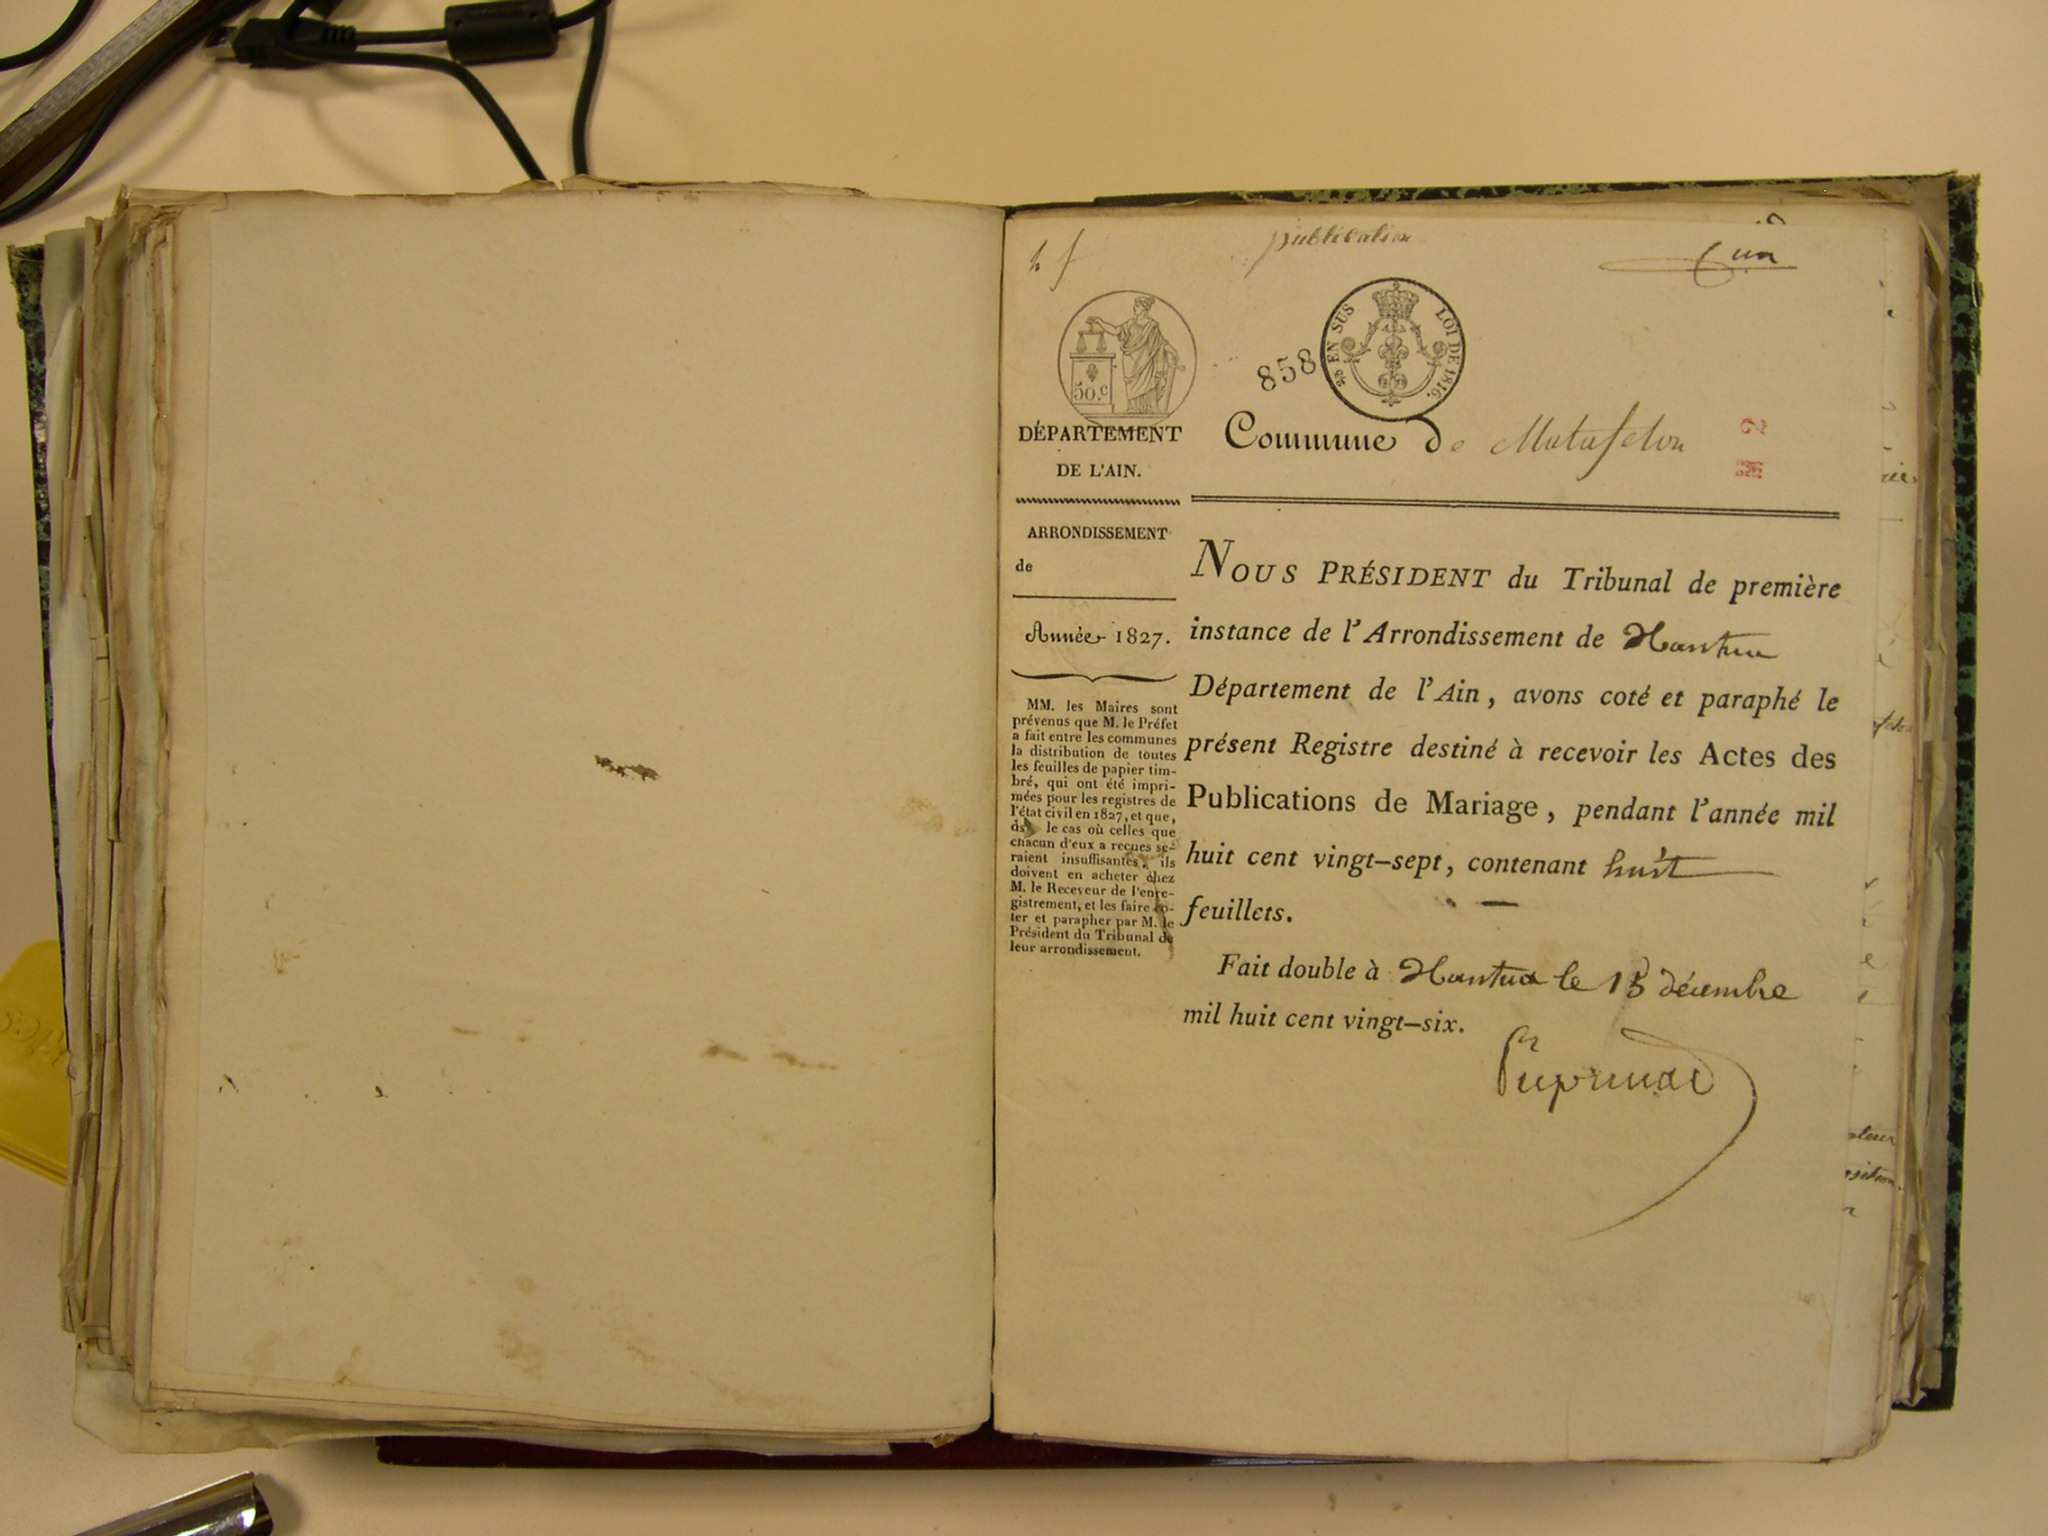 publication
un
50.c
858
¼ EN SUS LOI DE 1816.
DÉPARTEMENT
DE L'AIN.
Commune de Matafelon
ARRONDISSEMENT
de
Année 1827.
MM. les Maires sont
prévenus que M. le Préfet
a fait entre les communes
la distribution de toutes
les feuilles de papier tim-
bré, qui ont été impri-
mées pour les registres de
l'état civil en 1827, et que,
ds le cas où celles que
chacun d'eux a reçues se-
raient insuffisantes, ils
doivent en acheter chez
M. le Receveur de l'enre-
gistrement, et les faire co-
ter et parapher par M. le
Président du Tribunal de
leur arrondissement.
NOUS PRÉSIDENT du Tribunal de première
instance de l'Arrondissement de Nantua
Département de l'Ain, avons coté et paraphé le
présent Registre destiné à recevoir les Actes des
Publications de Mariage, pendant l'année mil
huit cent vingt-sept, contenant huit
feuillets.
Fait double à Nantua le 15 décembre
mil huit cent vingt-six.